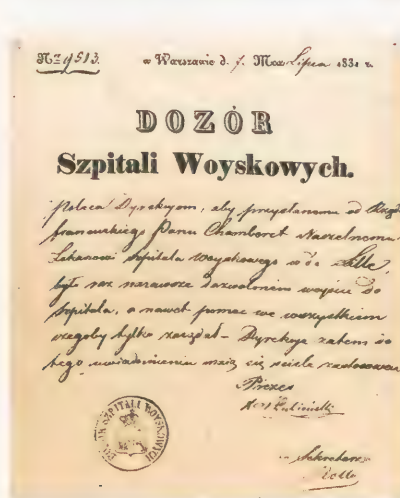 Nro 9513. w Warszawie d. 7. Mca Lipca 1831 r.
DOZÓR
Szpitali Woyskowych.
Poleca Dyrekcyom, aby przysłanemu od Rządu
francuzkiego Panu Chamberet Naczelnemu
Lekarzowi szpitala Woyskowego w Lille
było raz nazawsze dozwolonem wejście do
szpitala, a nawet pomoc we wszystkiem
czegoby tylko zażądał – Dyrekcye zatem do
tego uwiadomienia mają się ściśle zastosować
Prezes
Sekretarz